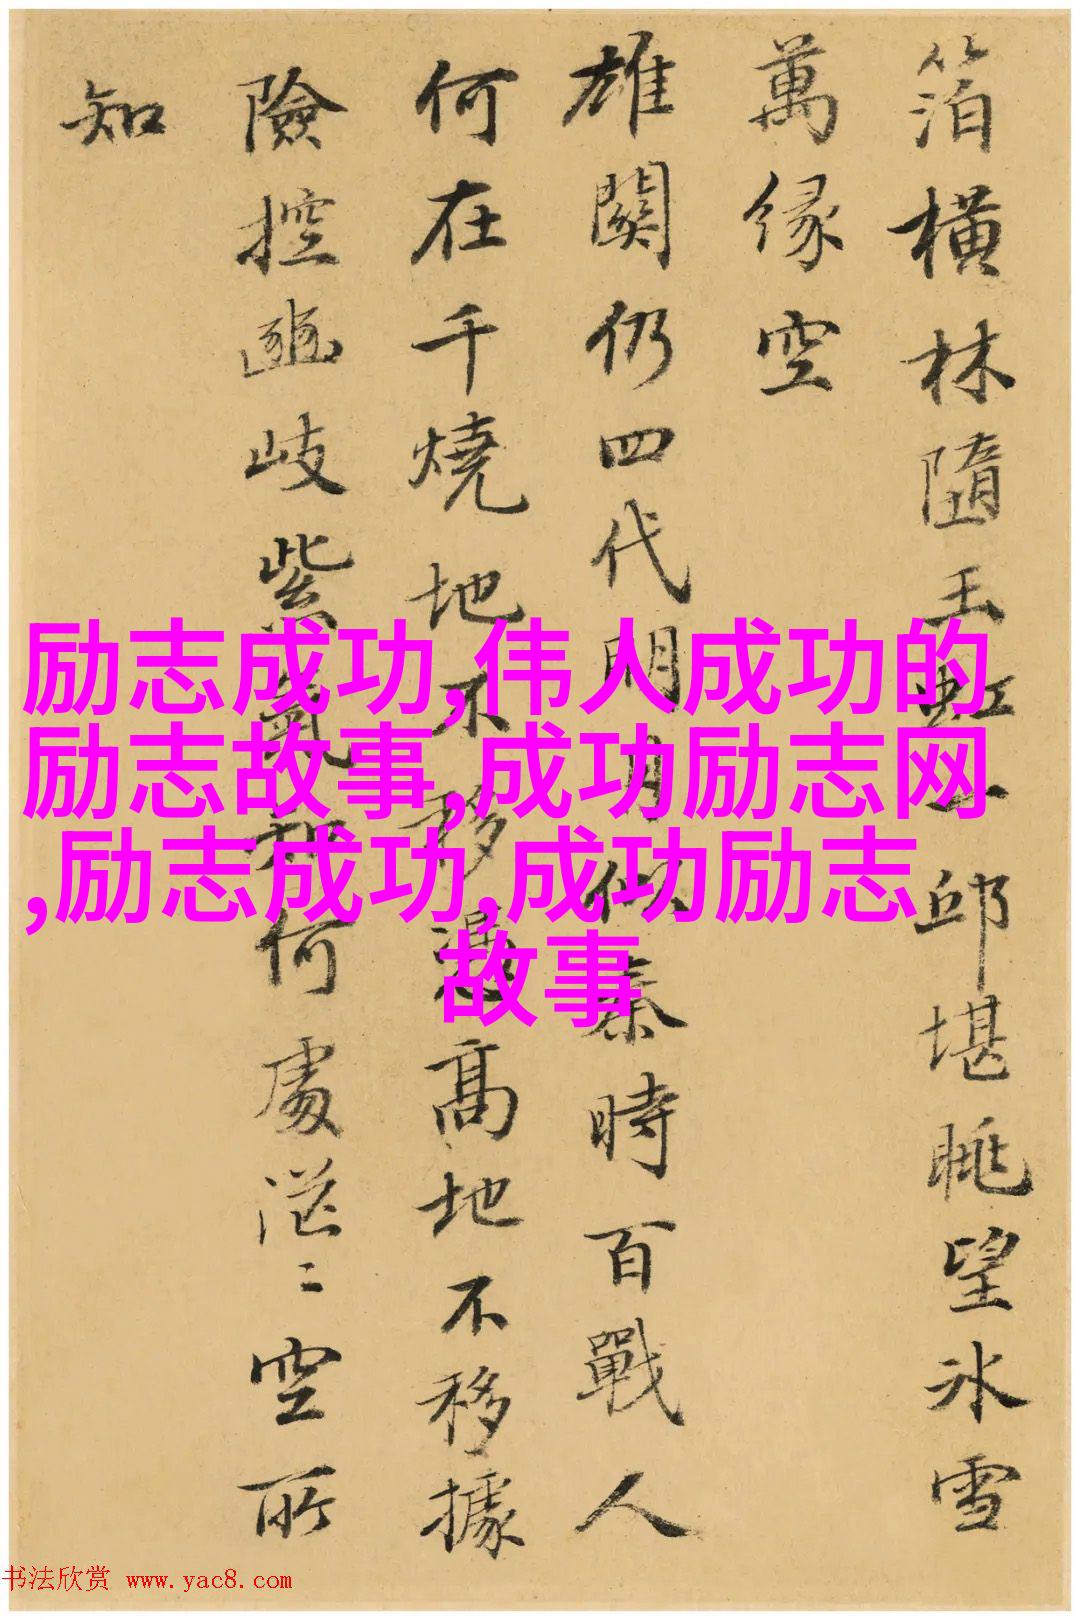 箔橫林隨玉虹一邱堪眺望冰雪
萬緣空
雄關仍四代明月似秦時百戰人
何在千燒地不移憑高地不移據
險控豳岐紫氣知何處茫〻空所
知
励志成功,伟人成功的
励志故事,成功励志网
,励志成功,成功励志
故事
书法欣赏 www.yac8.com